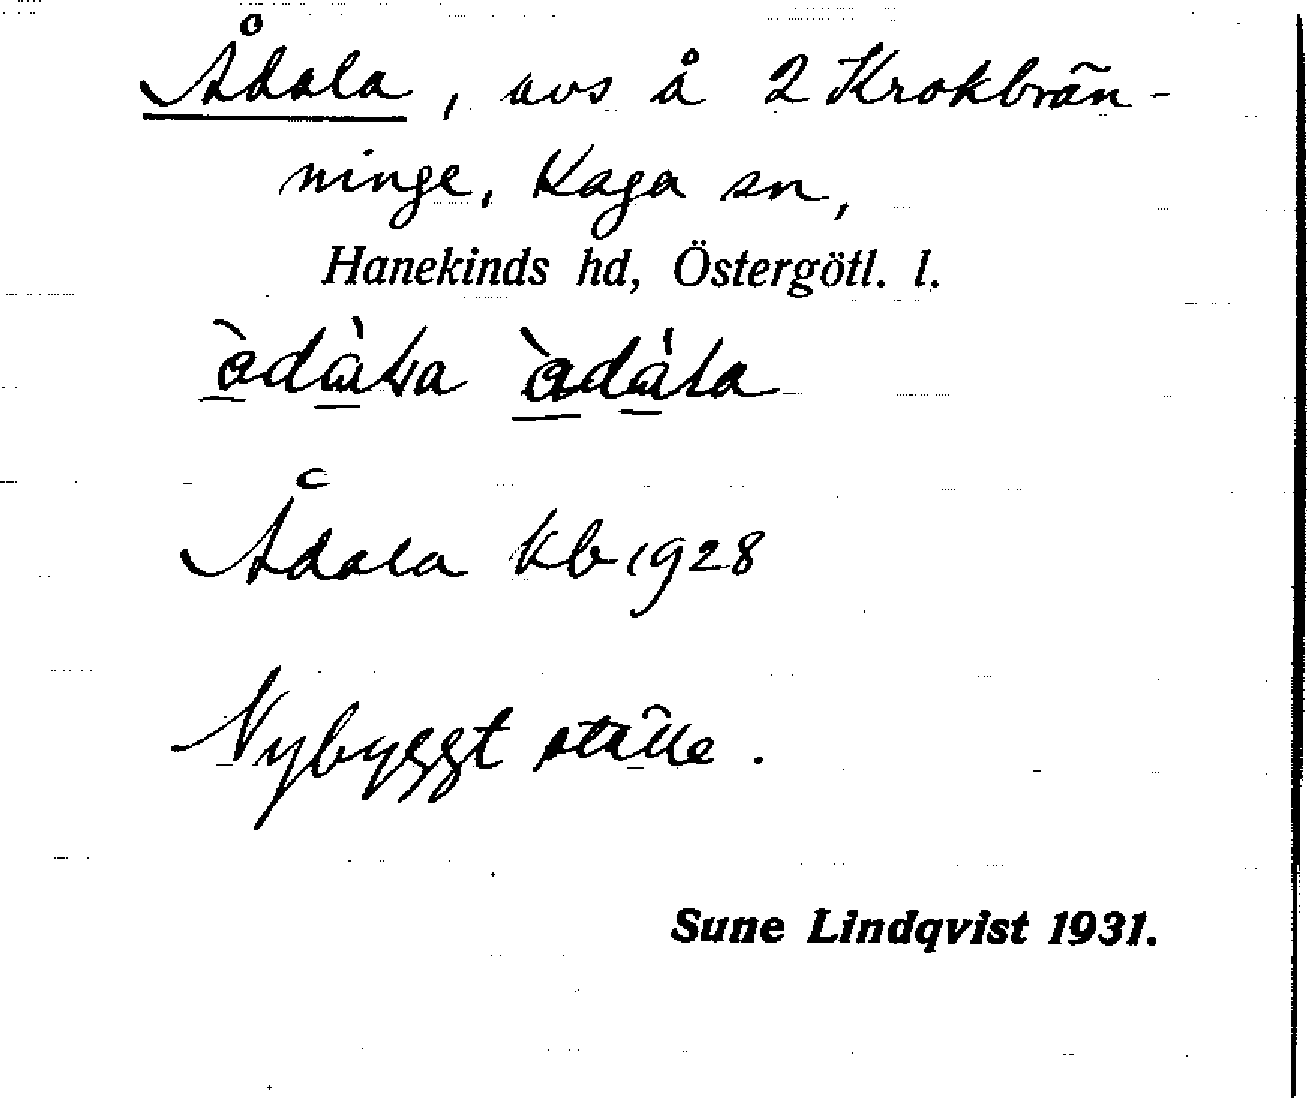 Ådala, avs å 2 Krokbrän-
ninge, Kaga sn,
Hanekinds hd, Östergötl. l.
Ådala kb 1928
Nybyggt ställe.
Sune Lindqvist 1931.